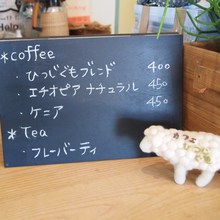 *coffee
・ひつじぐもブレンド 400
・エチオピア ナチュラル 450
・ケニア 450
*Tea
・フレーバーティ